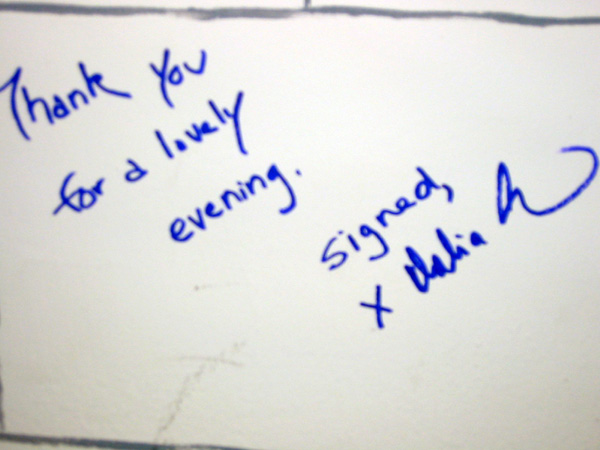 Thank you
for a lovely
evening.
signed,
x dalia